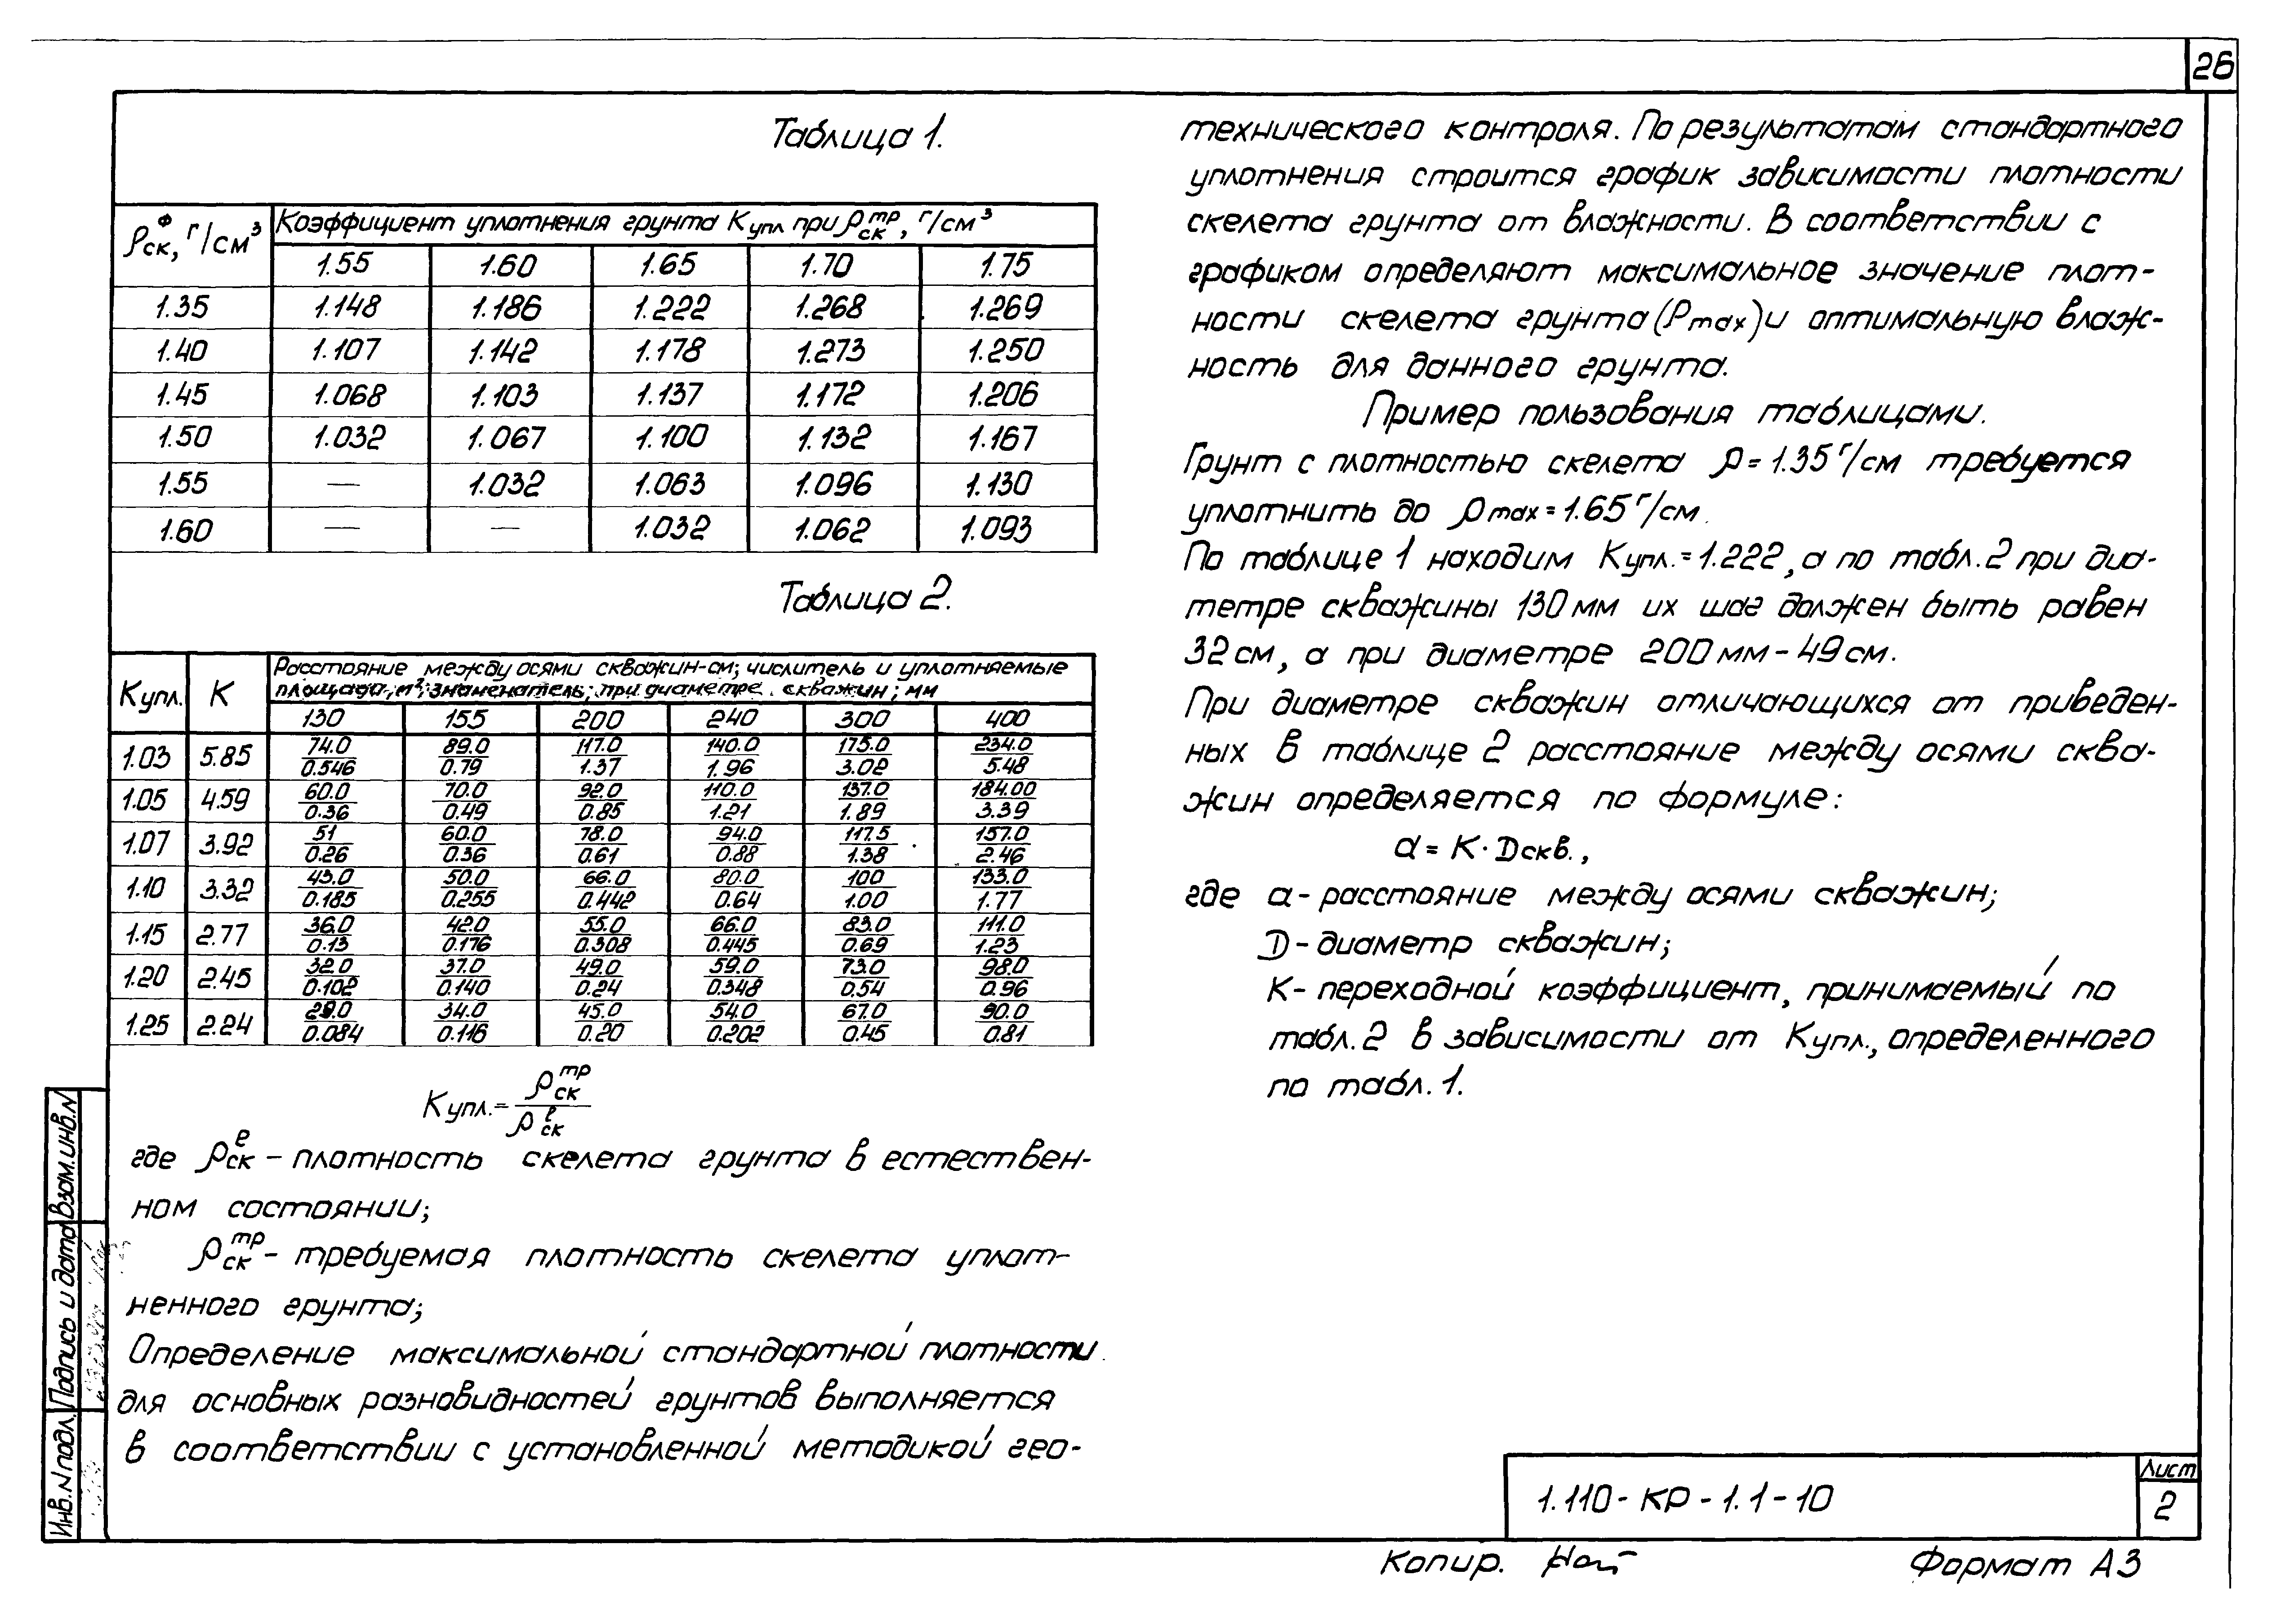 26
Таблица 1.
ρск ф, г/см³ Коэффициент уплотнения грунта Купл при ρск тр, г/см³
1.55 1.60 1.65 1.70 1.75
1.35 1.148 1.186 1.222 1.268 1.269
1.40 1.107 1.142 1.178 1.273 1.250
1.45 1.068 1.103 1.137 1.172 1.206
1.50 1.032 1.067 1.100 1.132 1.167
1.55 — 1.032 1.063 1.096 1.130
1.60 — — 1.032 1.062 1.093
Таблица 2.
Купл. К Расстояние между осями скважин-см; числитель и уплотняемые
площада, м²; знаменатель; при диаметре скважин; мм
130 155 200 240 300 400
1.03 5.85 74.0/0.546 89.0/0.79 117.0/1.37 140.0/1.96 175.0/3.02 234.0/5.48
1.05 4.59 60.0/0.36 70.0/0.49 92.0/0.85 110.0/1.21 137.0/1.89 184.00/3.39
1.07 3.92 51/0.26 60.0/0.36 78.0/0.61 94.0/0.88 117.5/1.38 157.0/2.46
1.10 3.32 43.0/0.185 50.0/0.255 66.0/0.442 80.0/0.64 100/1.00 133.0/1.77
1.15 2.77 36.0/0.13 42.0/0.176 55.0/0.308 66.0/0.445 83.0/0.69 111.0/1.23
1.20 2.45 32.0/0.102 37.0/0.140 49.0/0.24 59.0/0.348 73.0/0.54 98.0/0.96
1.25 2.24 29.0/0.084 34.0/0.116 45.0/0.20 54.0/0.202 67.0/0.45 90.0/0.81
Купл. = ρск тр / ρск е
где ρск е – плотность скелета грунта в естествен-
ном состоянии;
ρск тр – требуемая плотность скелета уплот-
ненного грунта;
Определение максимальной стандартной плотности
для основных разновидностей грунтов выполняется
в соответствии с установленной методикой гео-
технического контроля. По результатам стандартного
уплотнения строится график зависимости плотности
скелета грунта от влажности. В соответствии с
графиком определяют максимальное значение плот-
ности скелета грунта (Pmax) и оптимальную влаж-
ность для данного грунта.
Пример пользования таблицами.
Грунт с плотностью скелета ρ = 1.35 г/см требуется
уплотнить до ρmax = 1.65 г/см.
По таблице 1 находим Купл. = 1.222, а по табл. 2 при диа-
метре скважины 130 мм их шаг должен быть равен
32 см, а при диаметре 200 мм – 49 см.
При диаметре скважин отличающихся от приведен-
ных в таблице 2 расстояние между осями сква-
жин определяется по формуле:
а = К · Dскв.,
где а – расстояние между осями скважин;
D – диаметр скважин;
К – переходной коэффициент, принимаемый по
табл. 2 в зависимости от Купл., определенного
по табл. 1.
Инв. N подл. Подпись и дата Взам. инв. N
1.110 - КР - 1.1 - 10
Лист
2
Копир.
Формат А3